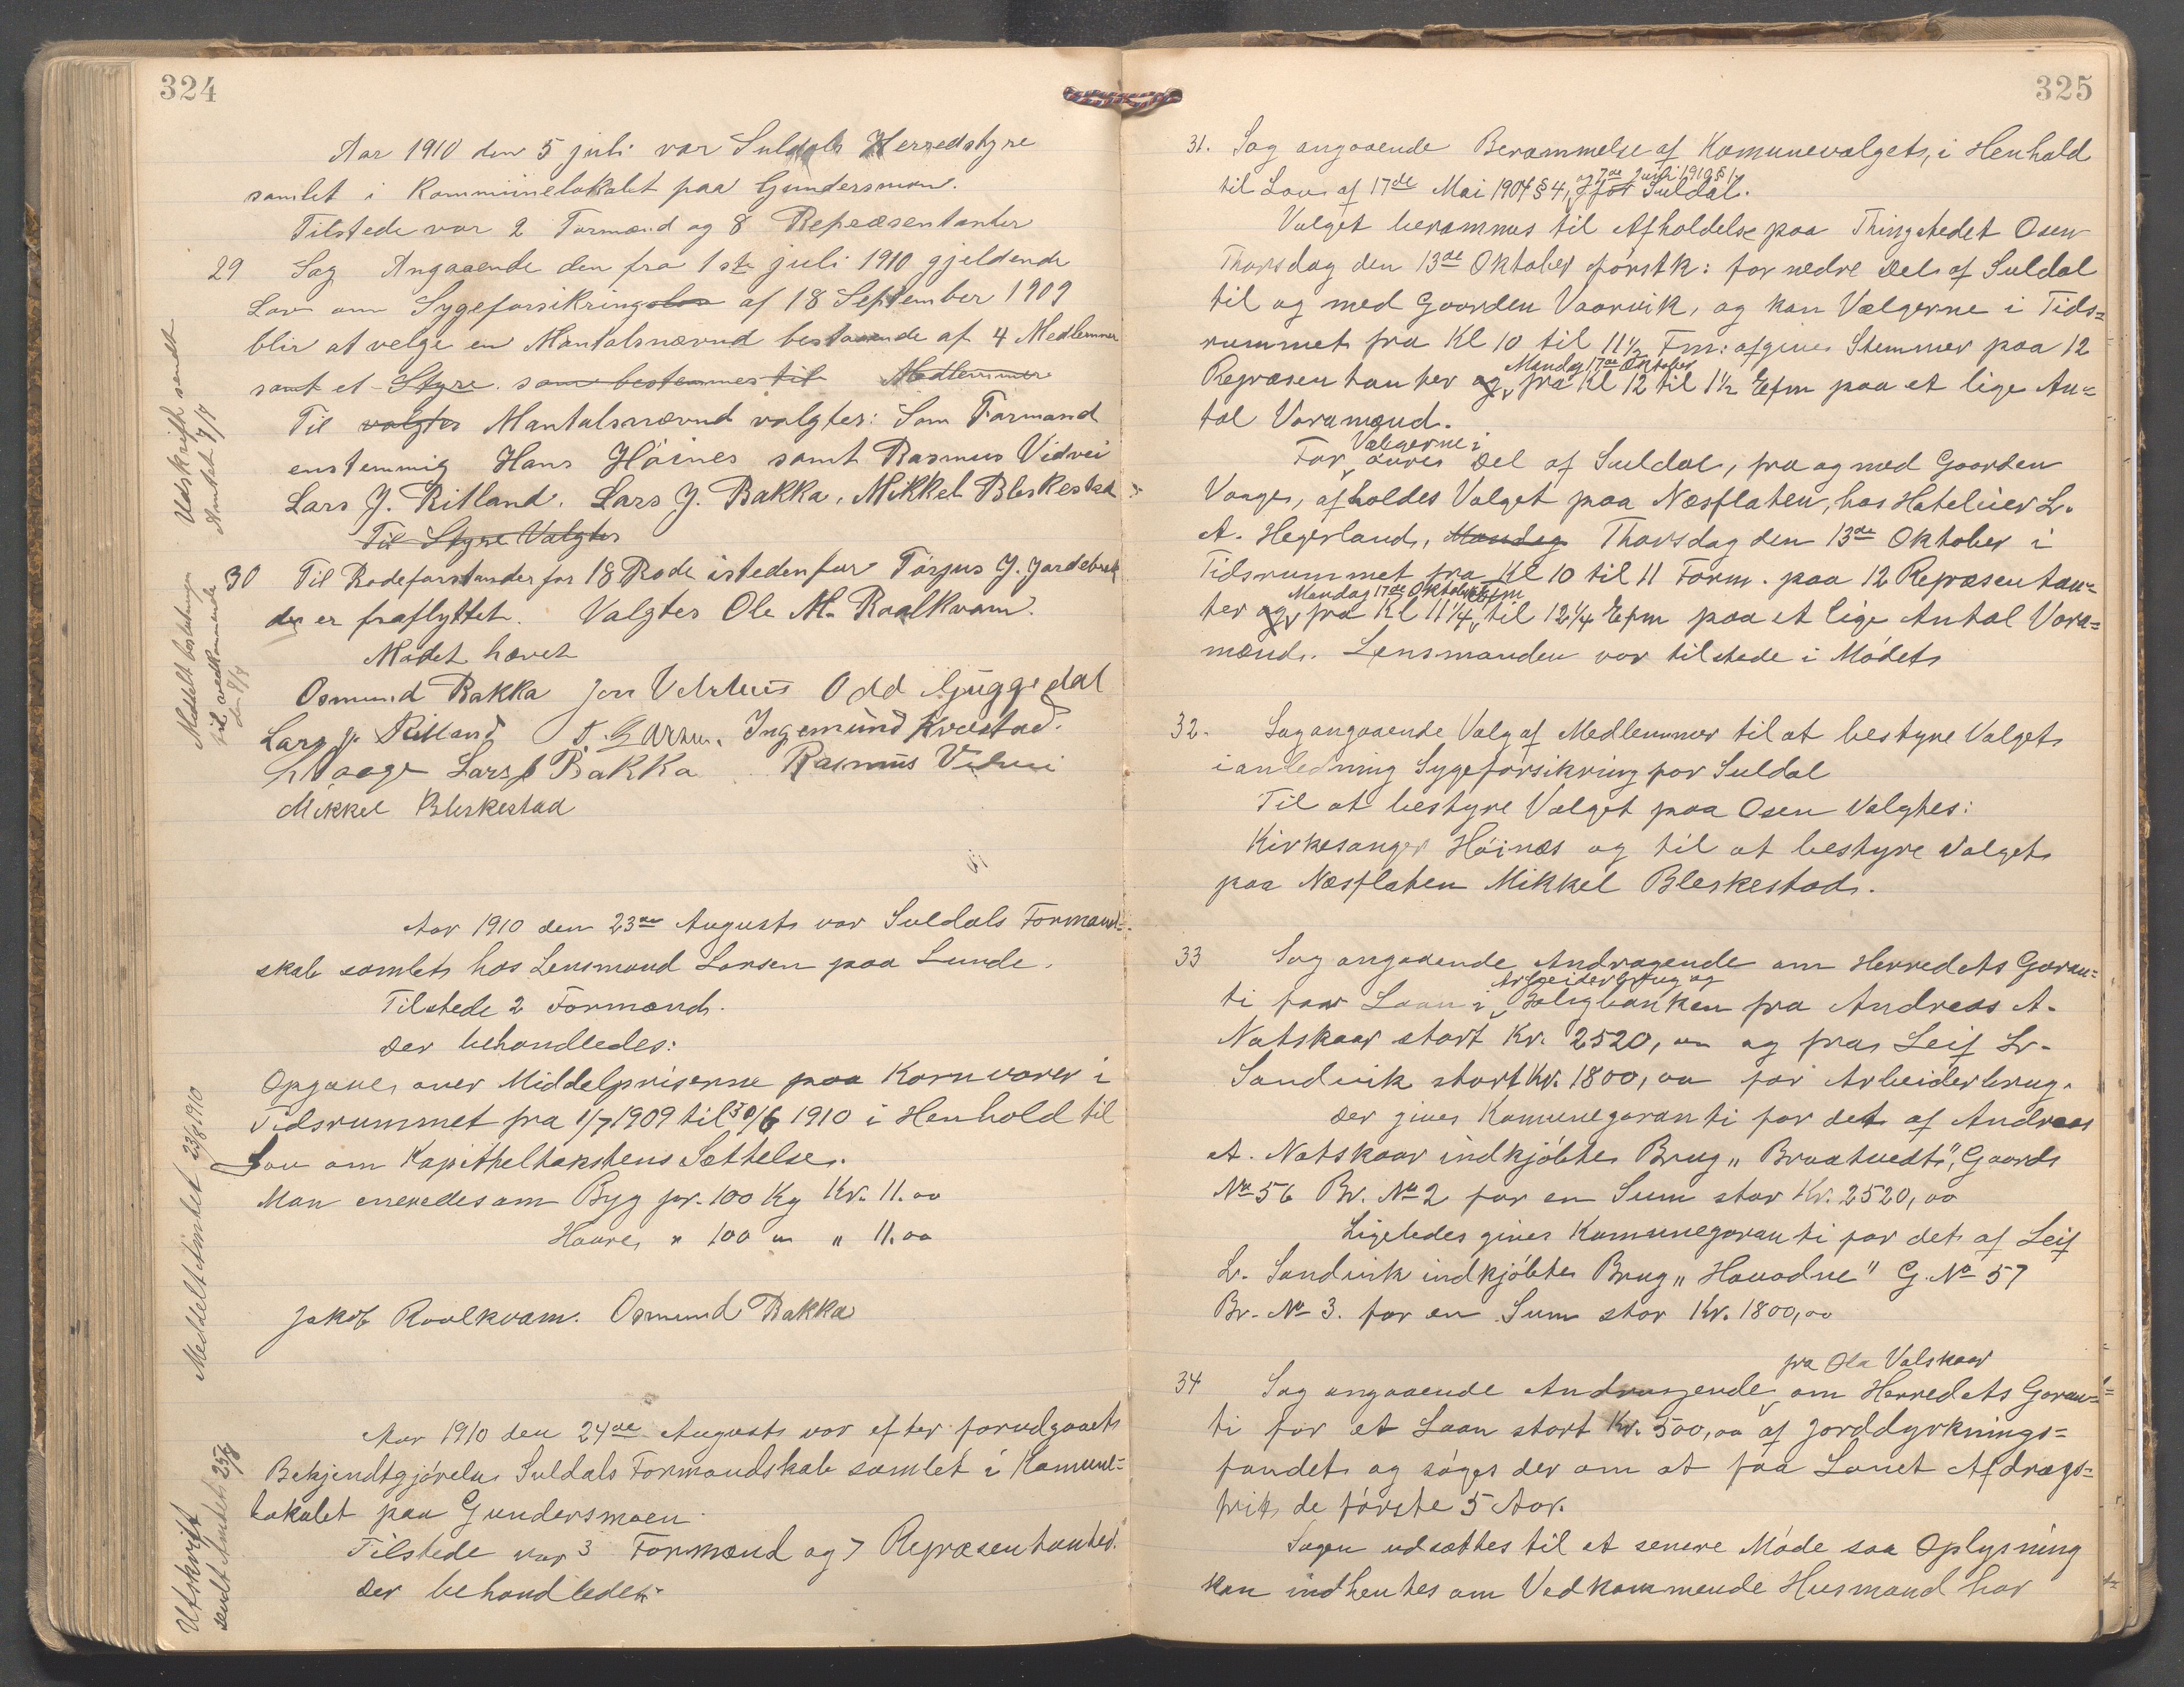 324
Aar 1910 den 5 juli var Suldals Herredstyre
samlet i Kommünelokalet paa Gundersmoen.
Tilstede var 2 Formænd og 8 Repræsentanter
29 Sag Angaaende den fra 1ste juli 1910 gjeldende
Lov om Sygeforsikringslov af 18 September 1909
blir at velge en Mantalsnævnd bestaaende af 4 Medlemmer
samt et Styre som bestemmes til Medlemmer
Til valgtes Mantalsnævnd valgtes: Som Formand
enstemmig Hans Höines samt Rasmus Vidvei
Lars J. Ritland. Lars J. Bakka, Mikkel Bleskestad
Til Styre Valgtes
30 Til Rodeforstander for 18 Rode istedenfor Torjus J. Jordebrek
der er fraflyttet. Valgtes Ole M. Roalkvam.
Mødet hævet
Osmund Bakka Jon Vetrhus Odd Guggedal
Lars J. Ritland T. Garzen. Ingemund Kvæstad.
L Vaage Lars J Bakka Rasmus Vidvei
Mikkel Bleskestad
Udskrift sendt
Amtet 9/7
Meddelt beslutningen
til vedkommende
den 9/7
Aar 1910 den 23de August var Suldals Formand-
skab samlet hos Lensmand Larsen paa Lunde.
Tilstede 2 Formænd.
Der behandledes:
Opgave over Middelpriserne paa Kornvarer i
Tidsrummet fra 1/7 1909 til 30/6 1910 i Henhold til
Lov om Kapiteltakstens Sættelse.
Man enededes om Byg pr. 100 Kg Kr. 11.00
Havre " 100 " " 11.00
Jakob Roalkvam. Osmund Bakka
Meddelt Amtet 23/8 1910
Aar 1910 den 24de August var efter forudgaaet
Bekjendtgjörelse Suldals Formandskab samlet i Komune-
lokalet paa Gundersmoen
Tilstede var 3 Formænd og 7 Repræsentanter.
Der behandledes
Utskrift
sendt Amtet 25/8
325
31. Sag angaaende Berammelse af Komunevalget, i Henhold
og 7de Juni 1910 § 1,
til Lov af 17de Mai 1904 § 4, for Suldal.
Valget berammes til Afholdelse paa Thingstedet Osen
Thorsdag den 13de Oktober förstk: for nedre Del af Suldal
til og med Gaarden Vaarvik, og kan Vælgerne i Tids=
rummet fra Kl 10 til 11½ Fm: afgive Stemmer paa 12
Mandag 17de Oktober
Repræsentanter og fra Kl 12 til 1½ Efm paa et lige An=
tal Varamænd.
Vælgerne i
For övre Del af Suldal, fra og med Gaarden
Vaage, afholdes Valget paa Næsflaten, hos Hotelier L.
A. Hegerland, Mandag Thorsdag den 13de Oktober i
Tidsrummet fra Kl 10 til 11 Form. paa 12 Repræsentan=
Mandag 17de Oktober Efm
ter og fra Kl 11¼ til 12¼ Efm paa et lige Antal Vara=
mænd. Lensmanden var tilstede i Mödet
32. Sag angaaende Valg af Medlemmer til at bestyre Valget
i anledning Sygeforsikring for Suldal
Til at bestyre Valget paa Osen Valgtes:
Kirkesanger Höinæs og til at bestyre Valget
paa Næsflaten Mikkel Bleskestad.
33 Sag angaaende Andragende om Herredets Garan=
Arbeiderbrug og
ti for Laan i Boligbanken fra Andreas A.
Natskaar stort Kr. 2520,00 og fra Leif L.
Sandvik stort Kr. 1800,00 for Arbeiderbrug.
Der gives Komunegaranti for det af Andreas
A. Natskaar indkjöbte Brug „Braatvedt", Gaards
No 56 Br. No 2 for en Sum stor Kr. 2520,00
Ligeledes gives Komunegaranti for det af Leif
L. Sandvik indkjöbte Brug „Havodne" G. No 57
Br. No 3. for en Sum stor Kr. 1800,00
fra Ola Valskaar
34 Sag angaaende Andragende om Herredets Garan=
ti for et Laan stort Kr. 500,00 af Jorddyrknings=
fondet og söges der om at faa Lanet Afdrags=
frit de förste 5 Aar.
Sagen udsættes til et senere Möde saa Oplysning
kan indhentes om Vedkommende Husmand har